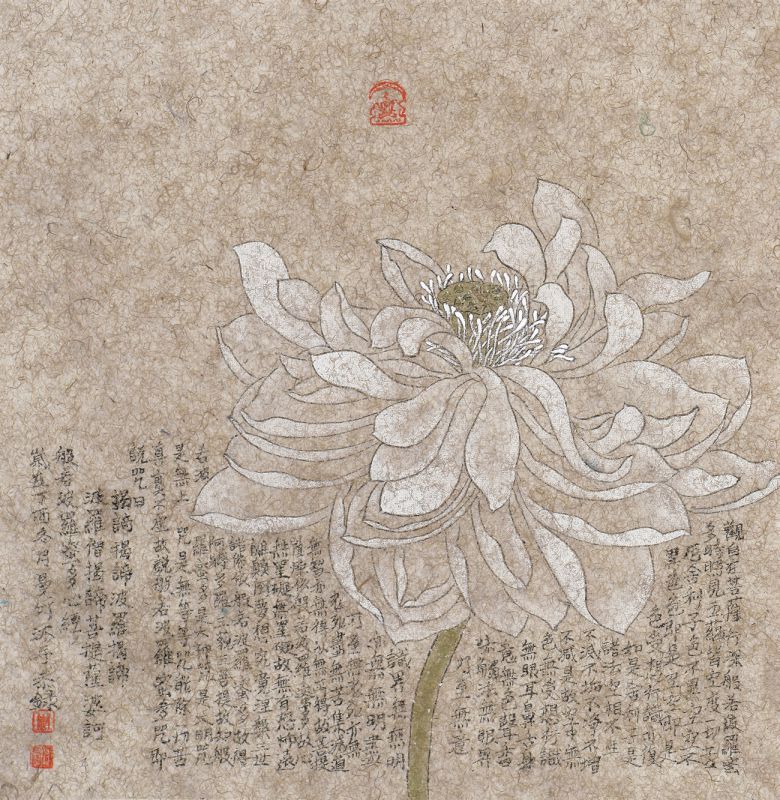 觀自在菩薩行深般若波羅蜜
多時照見五蘊皆空度一切苦
厄舍利子色不異空空不
異色色即是空空即是
色受想行識亦復
如是舍利子是
諸法空相不生
不滅不垢不淨不增
不減是故空中無
色無受想行識
無眼耳鼻舌身
意無色聲香
味觸法無眼界
乃至無意
識界無無明
亦無無明盡
乃至無老死亦無
老死盡無苦集滅道
無智亦無得以無所得故菩提
薩埵依般若波羅蜜多故心
無罣礙無罣礙故無有恐怖遠
離顛倒夢想究竟涅槃三世
諸佛依般若波羅蜜多故得
阿耨多羅三藐三菩提故知般
若波羅蜜多是大神咒是大明咒
是無上咒是無等等咒能除一切苦
真實不虛故說般若波羅蜜多咒即
說咒曰
揭諦揭諦波羅揭諦
波羅僧揭諦菩提薩婆訶
般若波羅蜜多心經
歲在丁酉冬月沐手敬錄